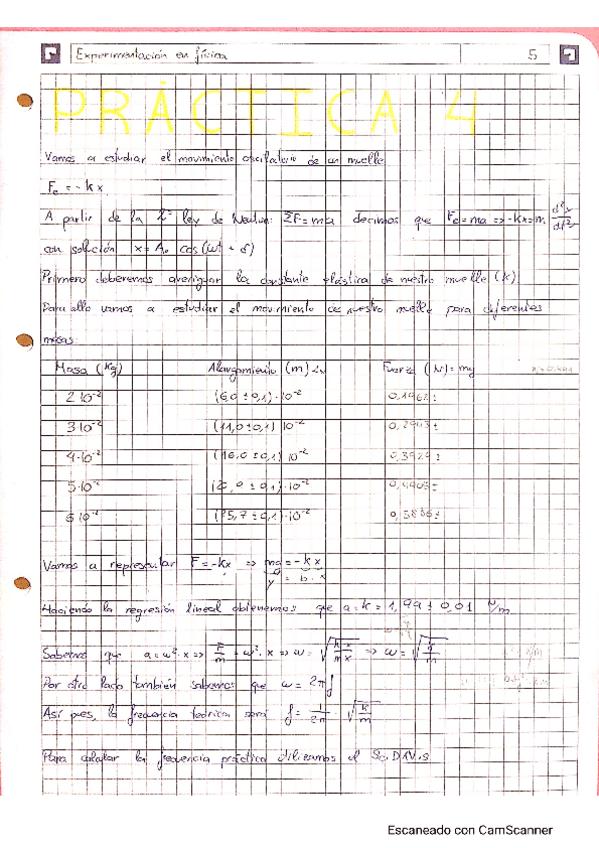 Experimentación en física 5
PRÁCTICA 4
Vamos a estudiar el movimiento oscilatorio de un muelle
Fe = -kx
A partir de la 2ª ley de Newton: ΣF=ma decimos que Fe=ma => -kx=m. d²x/dt²
con solución x = A₀ cos(ωt + δ)
Primero deberemos averiguar la constante elástica de nuestro muelle (k)
Para ello vamos a estudiar el movimiento de nuestro muelle para diferentes
masas
Masa (kg) Alargamiento (m) Fuerza (N) = mg
2·10⁻² (6,0 ± 0,1)·10⁻² 0,1962 ±
3·10⁻² (11,0 ± 0,1)·10⁻² 0,2943 ±
4·10⁻² (16,0 ± 0,1)·10⁻² 0,3924 ±
5·10⁻² ± 0,1)·10⁻² 0,4905 ±
6·10⁻² ± 0,1)·10⁻²
Vamos a representar F=-kx => mg = -kx
y = b·x
Haciendo la regresión lineal obtenemos que a=k= 1,99 ± 0,01 N/m
Sabemos que a=ω²·x => F/m = ω²·x => ω = √(k·x/m·x) => ω = √(k/m)
Por otro lado también sabemos que ω = 2πf
Así pues, la frecuencia teórica será f = 1/2π · √(k/m)
Para calcular la frecuencia práctica utilizamos el
Escaneado con CamScanner